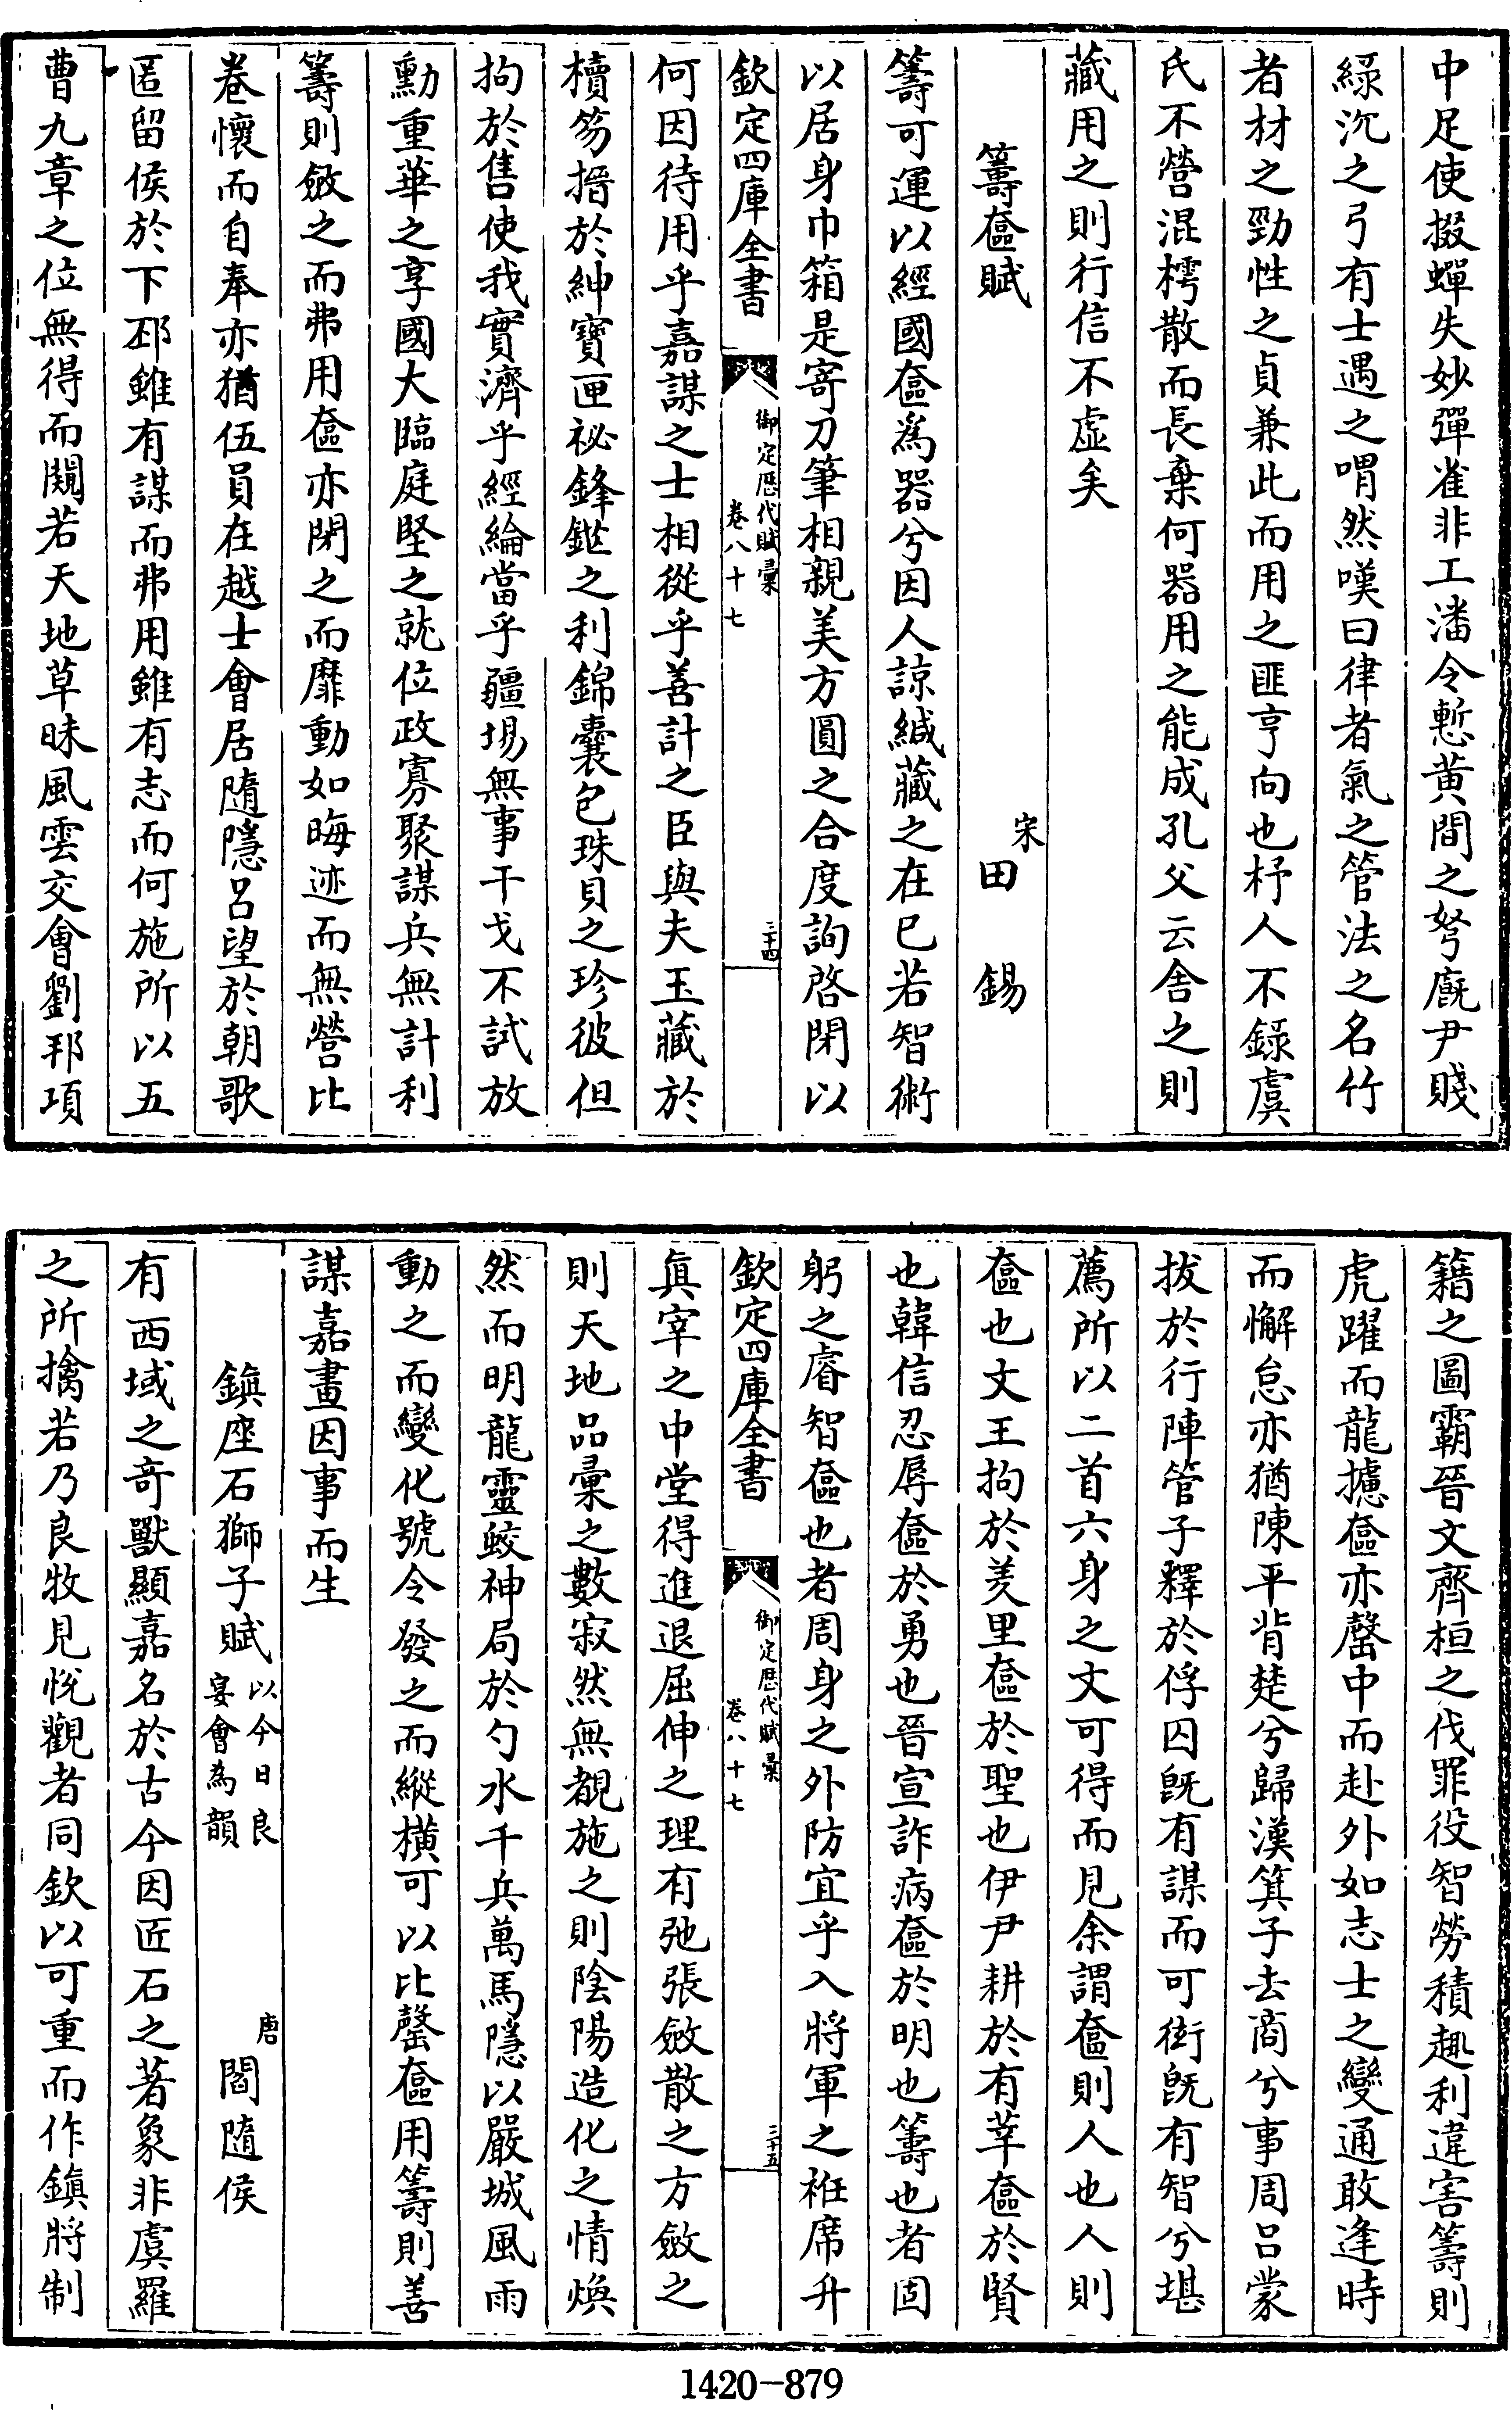 中足使掇蟬失妙彈雀非工潘令慙黄間之弩廐尹賤
緑沉之弓有士遇之喟然嘆曰律者氣之管法之名竹
者材之勁性之貞兼此而用之匪亨向也杼人不録虞
氏不營混樗散而長棄何器用之能成孔父云舍之則
藏用之則行信不虚矣
籌奩賦
宋田錫
籌可運以經國奩為器兮因人諒緘藏之在已若智術
以居身巾箱是寄刀筆相親美方圓之合度詢啓閉以
欽定四庫全書
御定歴代賦彚
卷八十七
二十四
何因待用乎嘉謀之士相從乎善計之臣與夫玉藏於
櫝笏搢於紳寶匣祕鋒鋩之利錦囊包珠貝之珍彼但
拘於售使我實濟乎經綸當乎疆埸無事干戈不試放
勳重華之享國大臨庭堅之就位政寡聚謀兵無計利
籌則斂之而弗用奩亦閉之而靡動如晦迹而無營比
卷懷而自奉亦猶伍員在越士會居隨隱吕望於朝歌
匿留侯於下邳雖有謀而弗用雖有志而何施所以五
曹九章之位無得而闚若天地草昧風雲交會劉邦項
籍之圖霸晉文齊桓之伐罪役智勞積趣利違害籌則
虎躍而龍攄奩亦罄中而赴外如志士之變通敢逢時
而懈怠亦猶陳平背楚兮歸漢箕子去商兮事周吕蒙
拔於行陣管子釋於俘囚既有謀而可衒既有智兮堪
薦所以二首六身之文可得而見余謂奩則人也人則
奩也文王拘於羑里奩於聖也伊尹耕於有莘奩於賢
也韓信忍辱奩於勇也晉宣詐病奩於明也籌也者固
躬之睿智奩也者周身之外防宜乎入將軍之袵席升
欽定四庫全書
御定歴代賦彚
卷八十七
二十五
真宰之中堂得進退屈伸之理有弛張斂散之方斂之
則天地品彙之數寂然無覩施之則陰陽造化之情煥
然而明龍靈蛟神局於勺水千兵萬馬隱以嚴城風雨
動之而變化號令發之而縱橫可以比罄奩用籌則善
謀嘉畫因事而生
鎮座石獅子賦以今日良宴會為韻
唐閻隨侯
有西域之竒獸顯嘉名於古今因匠石之著象非虞羅
之所擒若乃良牧見悅觀者同欽以可重而作鎮將制
1420-879